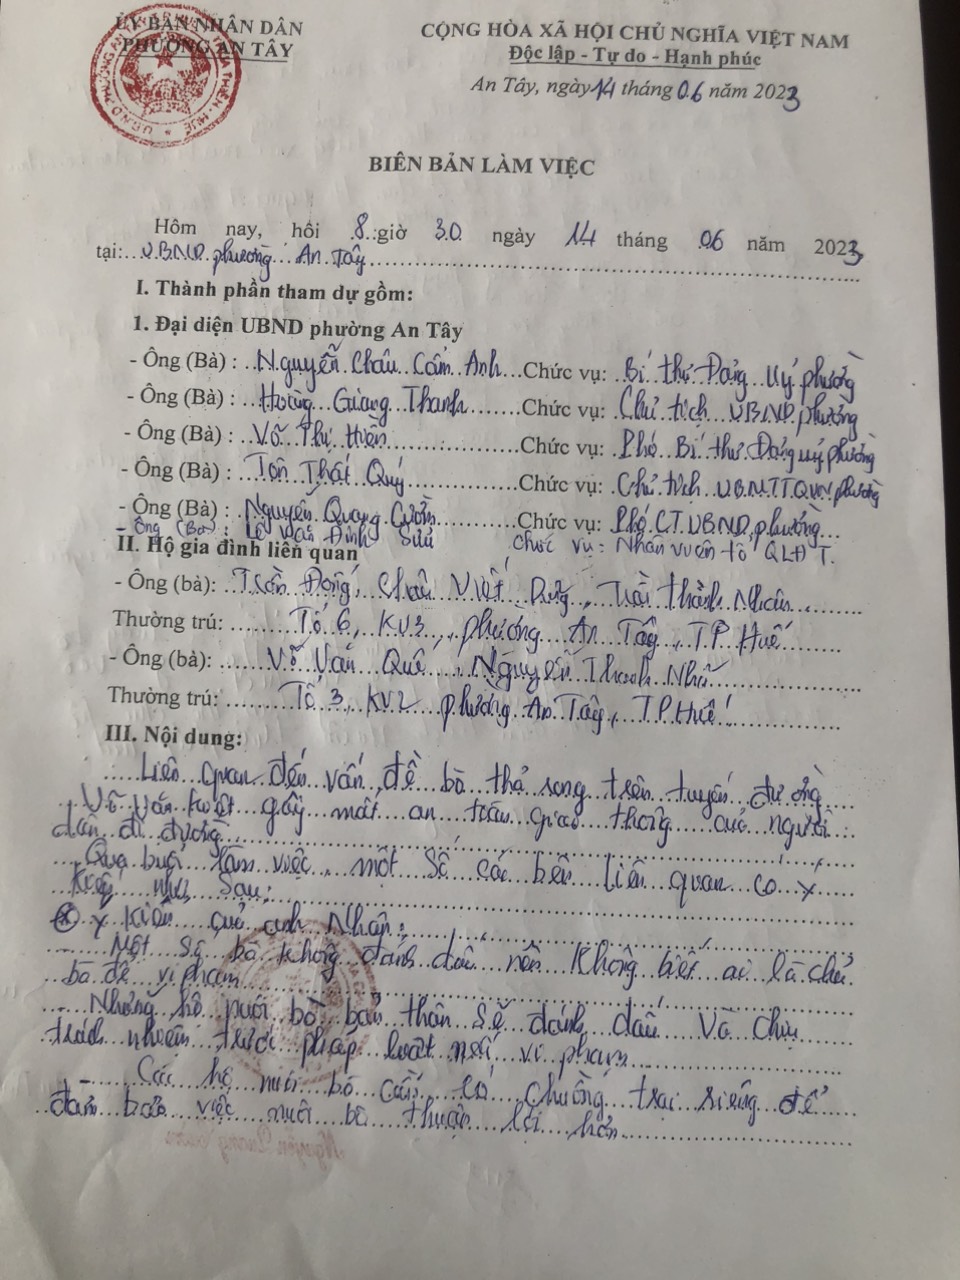 ỦY BAN NHÂN DÂN
PHƯỜNG AN TÂY
CỘNG HÒA XÃ HỘI CHỦ NGHĨA VIỆT NAM
Độc lập - Tự do - Hạnh phúc
An Tây, ngày 14 tháng 06 năm 2023
BIÊN BẢN LÀM VIỆC
Hôm nay, hồi 8 giờ 30 ngày 14 tháng 06 năm 2023
tại: UBND phường An Tây
I. Thành phần tham dự gồm:
1. Đại diện UBND phường An Tây
- Ông (Bà) : Nguyễn Châu Cẩm Anh Chức vụ: Bí thư Đảng Uỷ phường
- Ông (Bà) : Hoàng Giang Thanh Chức vụ: Chủ tịch UBND phường
- Ông (Bà) : Võ Thị Hiền Chức vụ: Phó Bí thư Đảng uỷ phường
- Ông (Bà) : Tôn Thất Quý Chức vụ: Chủ tịch UBMTTQVN phường
- Ông (Bà) : Nguyễn Quang Cườm Chức vụ: Phó CT UBND phường
- Ông (Bà) : Lê Văn Đình Sửu Chức vụ: Nhân viên tổ QLĐT.
II. Hộ gia đình liên quan
- Ông (bà): Trần Đợi, Châu Viết Dũng, Trần Thành Nhân
Thường trú: Tổ 6, KV3, phường An Tây, TP Huế
- Ông (bà): Võ Văn Quế, Nguyễn Thanh Nhã
Thường trú: Tổ 3, KV2 phường An Tây, TP Huế
III. Nội dung:
Liên quan đến vấn đề bò thả rong trên tuyến đường
Võ Văn Kiệt gây mất an toàn giao thông của người
dân đi đường
Qua buổi làm việc, một số các bên liên quan có ý
kiến như sau:
* Ý kiến của anh Nhân:
- Một số bò không đánh dấu nên không biết ai là chủ
bò để vi phạm
- Những hộ nuôi bò bản thân sẽ đánh dấu và chịu
trách nhiệm trước pháp luật nếu vi phạm
- Các hộ nuôi bò cần có chuồng trại riêng để
đảm bảo việc nuôi bò thuận lợi hơn